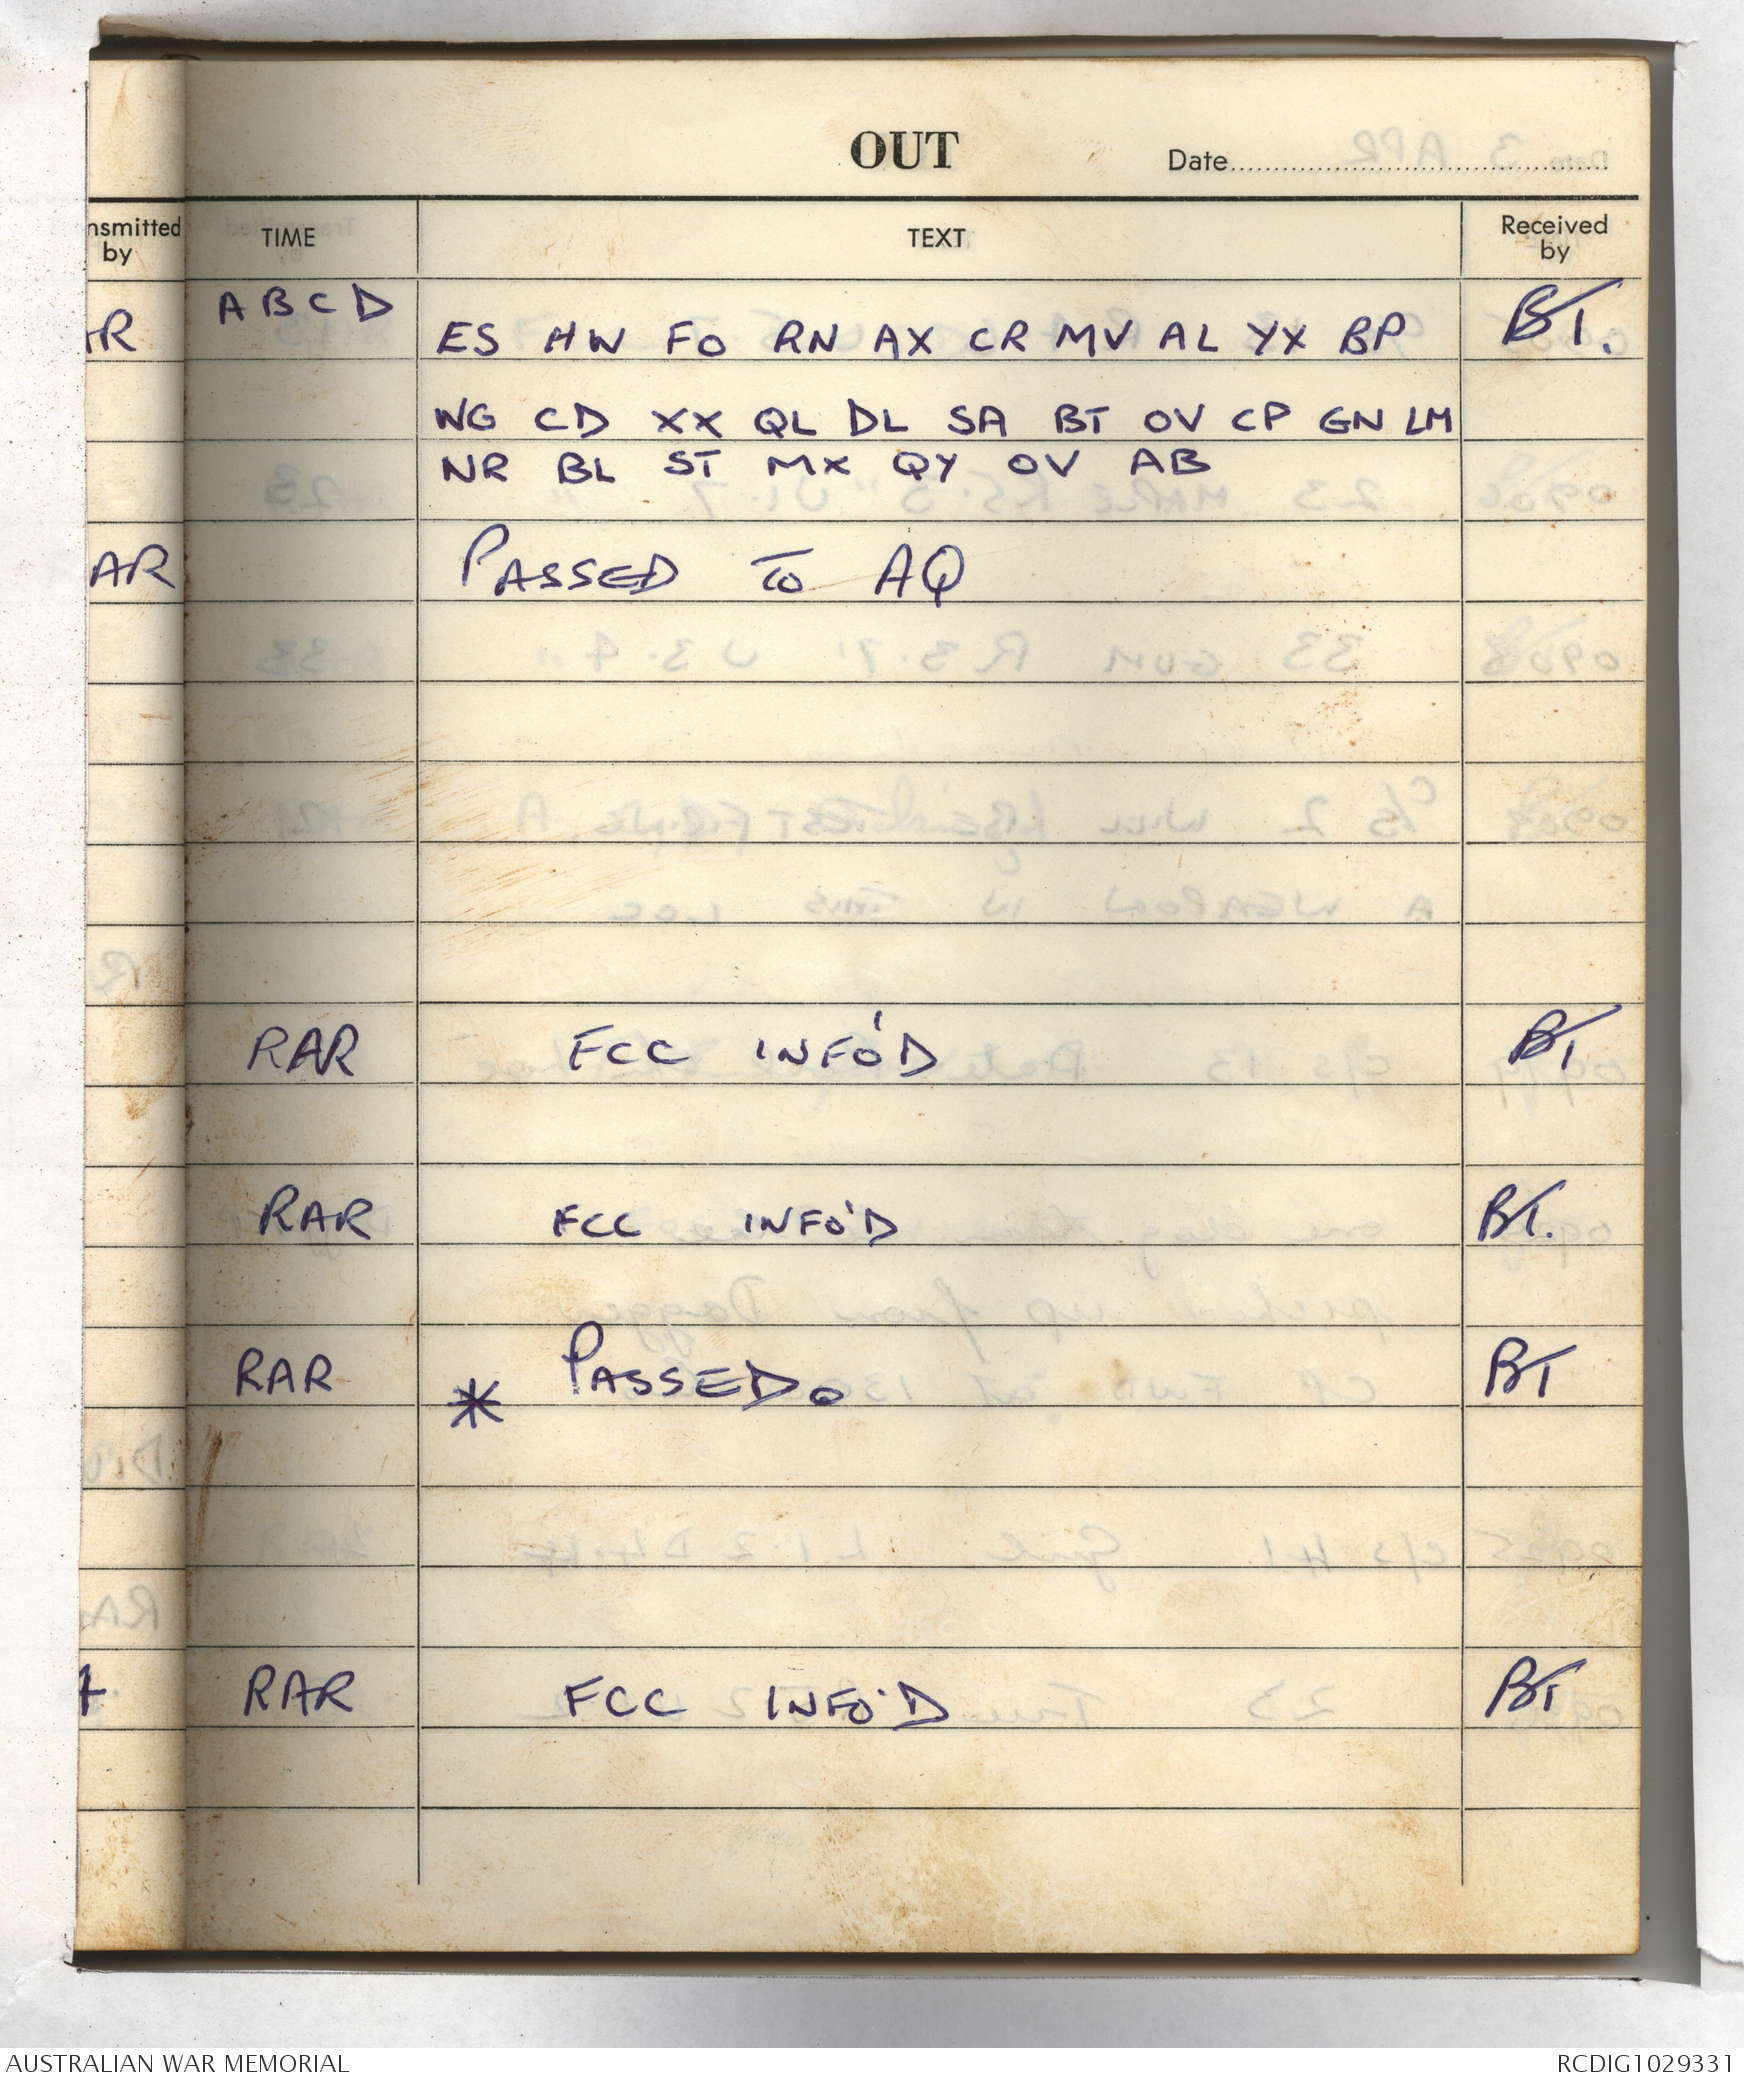 OUT Date
nsmitted by TIME TEXT Received by
A B C D
ES HW FO RN AX CR MV AL YX BP BT.
NG CD XX QL DL SA BT OV CP GN LM
NR BL ST MX QY OV AB
AR PASSED TO AQ
RAR FCC INFO'D BT
RAR FCC INFO'D BT.
RAR * PASSED. BT
RAR FCC INFO'D BT
AUSTRALIAN WAR MEMORIAL RCDIG1029331